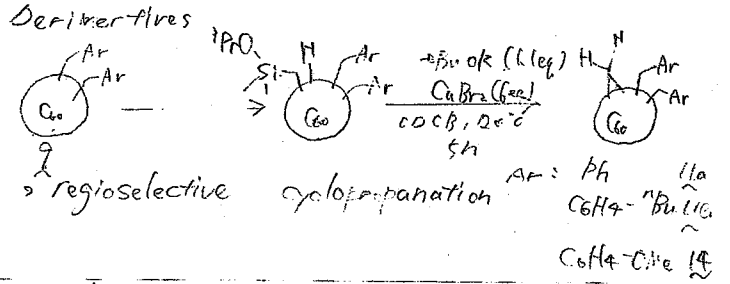 Derivertives
Ar
Ar
C60
9
iPrO
Si
H
Ar
Ar
C60
tBuOK (1.1eq)
CuBr2 (6eq)
ODCB, 20°C
5h
H
H
Ar
Ar
C60
regioselective cyclopropanation
Ar: Ph 11a
C6H4-nBu
C6H4-OMe 14